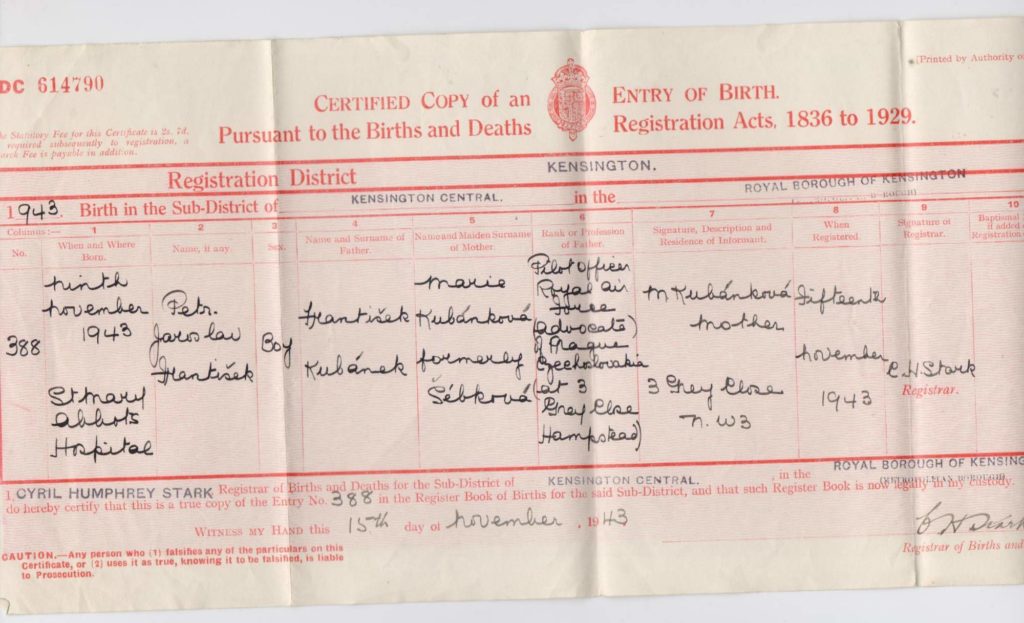 DC 614790
[Printed by Authority o
CERTIFIED COPY OF AN ENTRY OF BIRTH.
Pursuant to the Births and Deaths Registration Acts, 1836 to 1929.
he Statutory Fee for this Certificate is 2s. 7d.
required subsequently to registration, a
arch Fee is payable in addition.
Registration District KENSINGTON.
1943. Birth in the Sub-District of KENSINGTON CENTRAL. in the ROYAL BOROUGH OF KENSINGTON
Columns:— 1 2 3 4 5 6 7 8 9 10
No.
When and Where
Born.
Name, if any.
Sex.
Name and Surname of
Father.
Name and Maiden Surname
of Mother.
Rank or Profession
of Father.
Signature, Description and
Residence of Informant.
When
Registered.
Signature of
Registrar.
Baptismal
if added a
Registration
388
ninth
november
1943
St Mary
Abbots
Hospital
Petr.
Jaroslav
František
Boy
František
Kubánek
Marie
Kubánková
formerly
Šébková
Pilot Officer
Royal air
Force
(advocate)
of Prague
Czechoslovakia
(at 3
Grey Close
Hampstead)
M Kubánková
mother
3 Grey Close
N.W3
Fifteenth
november
1943
C.H.Stark
Registrar.
I, CYRIL HUMPHREY STARK Registrar of Births and Deaths for the Sub-District of KENSINGTON CENTRAL. , in the ROYAL BOROUGH OF KENSING
do hereby certify that this is a true copy of the Entry No. 388 in the Register Book of Births for the said Sub-District, and that such Register Book is now legally in my custody.
WITNESS MY HAND this 15th day of november , 1943
C H Stark
Registrar of Births and
CAUTION.—Any person who (1) falsifies any of the particulars on this
Certificate, or (2) uses it as true, knowing it to be falsified, is liable
to Prosecution.